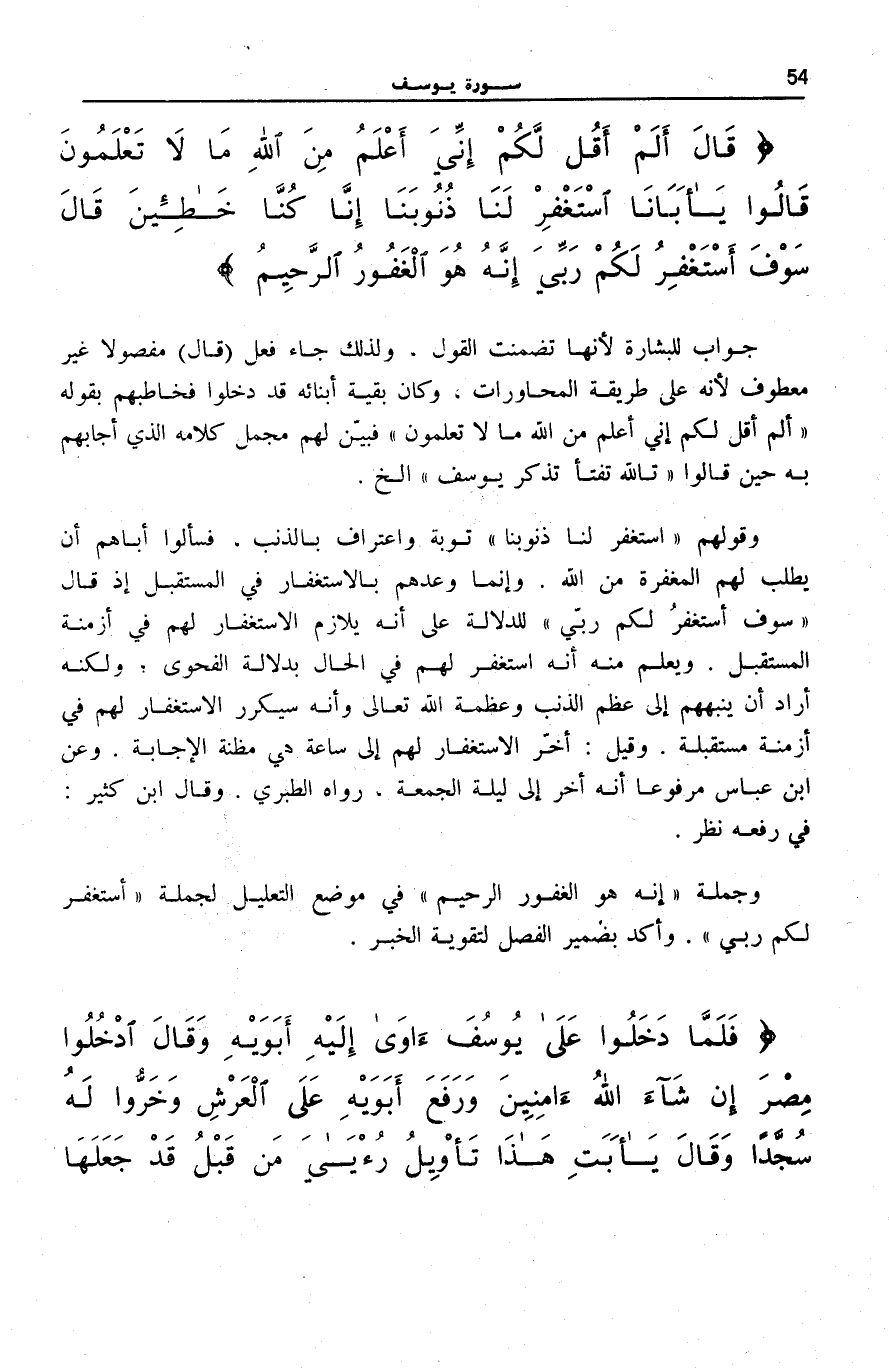 54
سورة يوسف
﴿ قَالَ أَلَمْ أَقُل لَّكُمْ إِنِّيَ أَعْلَمُ مِنَ ٱللَّهِ مَا لَا تَعْلَمُونَ
قَالُوا يَـٰأَبَانَا ٱسْتَغْفِرْ لَنَا ذُنُوبَنَا إِنَّا كُنَّا خَـٰطِـِٔينَ قَالَ
سَوْفَ أَسْتَغْفِرُ لَكُمْ رَبِّيَ إِنَّهُ هُوَ ٱلْغَفُورُ ٱلرَّحِيمُ ﴾
جواب للبشارة لأنها تضمنت القول . ولذلك جاء فعل (قال) مفصولا غير
معطوف لأنه على طريقة المحاورات ، وكان بقية أبنائه قد دخلوا فخاطبهم بقوله
« ألم أقل لكم إني أعلم من الله ما لا تعلمون » فبيّن لهم مجمل كلامه الذي أجابهم
به حين قالوا « تالله تفتأ تذكر يوسف » الخ .
وقولهم « استغفر لنا ذنوبنا » توبة واعتراف بالذنب . فسألوا أباهم أن
يطلب لهم المغفرة من الله . وإنما وعدهم بالاستغفار في المستقبل إذ قال
« سوف أستغفرُ لكم ربّي » للدلالة على أنه يلازم الاستغفار لهم في أزمنة
المستقبل . ويعلم منه أنه استغفر لهم في الحال بدلالة الفحوى ؛ ولكنه
أراد أن ينبههم إلى عظم الذنب وعظمة الله تعالى وأنه سيكرر الاستغفار لهم في
أزمنة مستقبلة . وقيل : أخّر الاستغفار لهم إلى ساعة هي مظنة الإجابة . وعن
ابن عباس مرفوعا أنه أخر إلى ليلة الجمعة ، رواه الطبري . وقال ابن كثير :
في رفعه نظر .
وجملة « إنه هو الغفور الرحيم » في موضع التعليل لجملة « أستغفر
لكم ربي » . وأكد بضمير الفصل لتقوية الخبر .
﴿ فَلَمَّا دَخَلُوا عَلَىٰ يُوسُفَ ءَاوَىٰ إِلَيْهِ أَبَوَيْهِ وَقَالَ ٱدْخُلُوا
مِصْرَ إِن شَآءَ اللَّهُ ءَامِنِينَ وَرَفَعَ أَبَوَيْهِ عَلَى ٱلْعَرْشِ وَخَرُّوا لَهُ
سُجَّدًا وَقَالَ يَـٰأَبَتِ هَـٰذَا تَأْوِيلُ رُءْيَـٰيَ مِن قَبْلُ قَدْ جَعَلَهَا